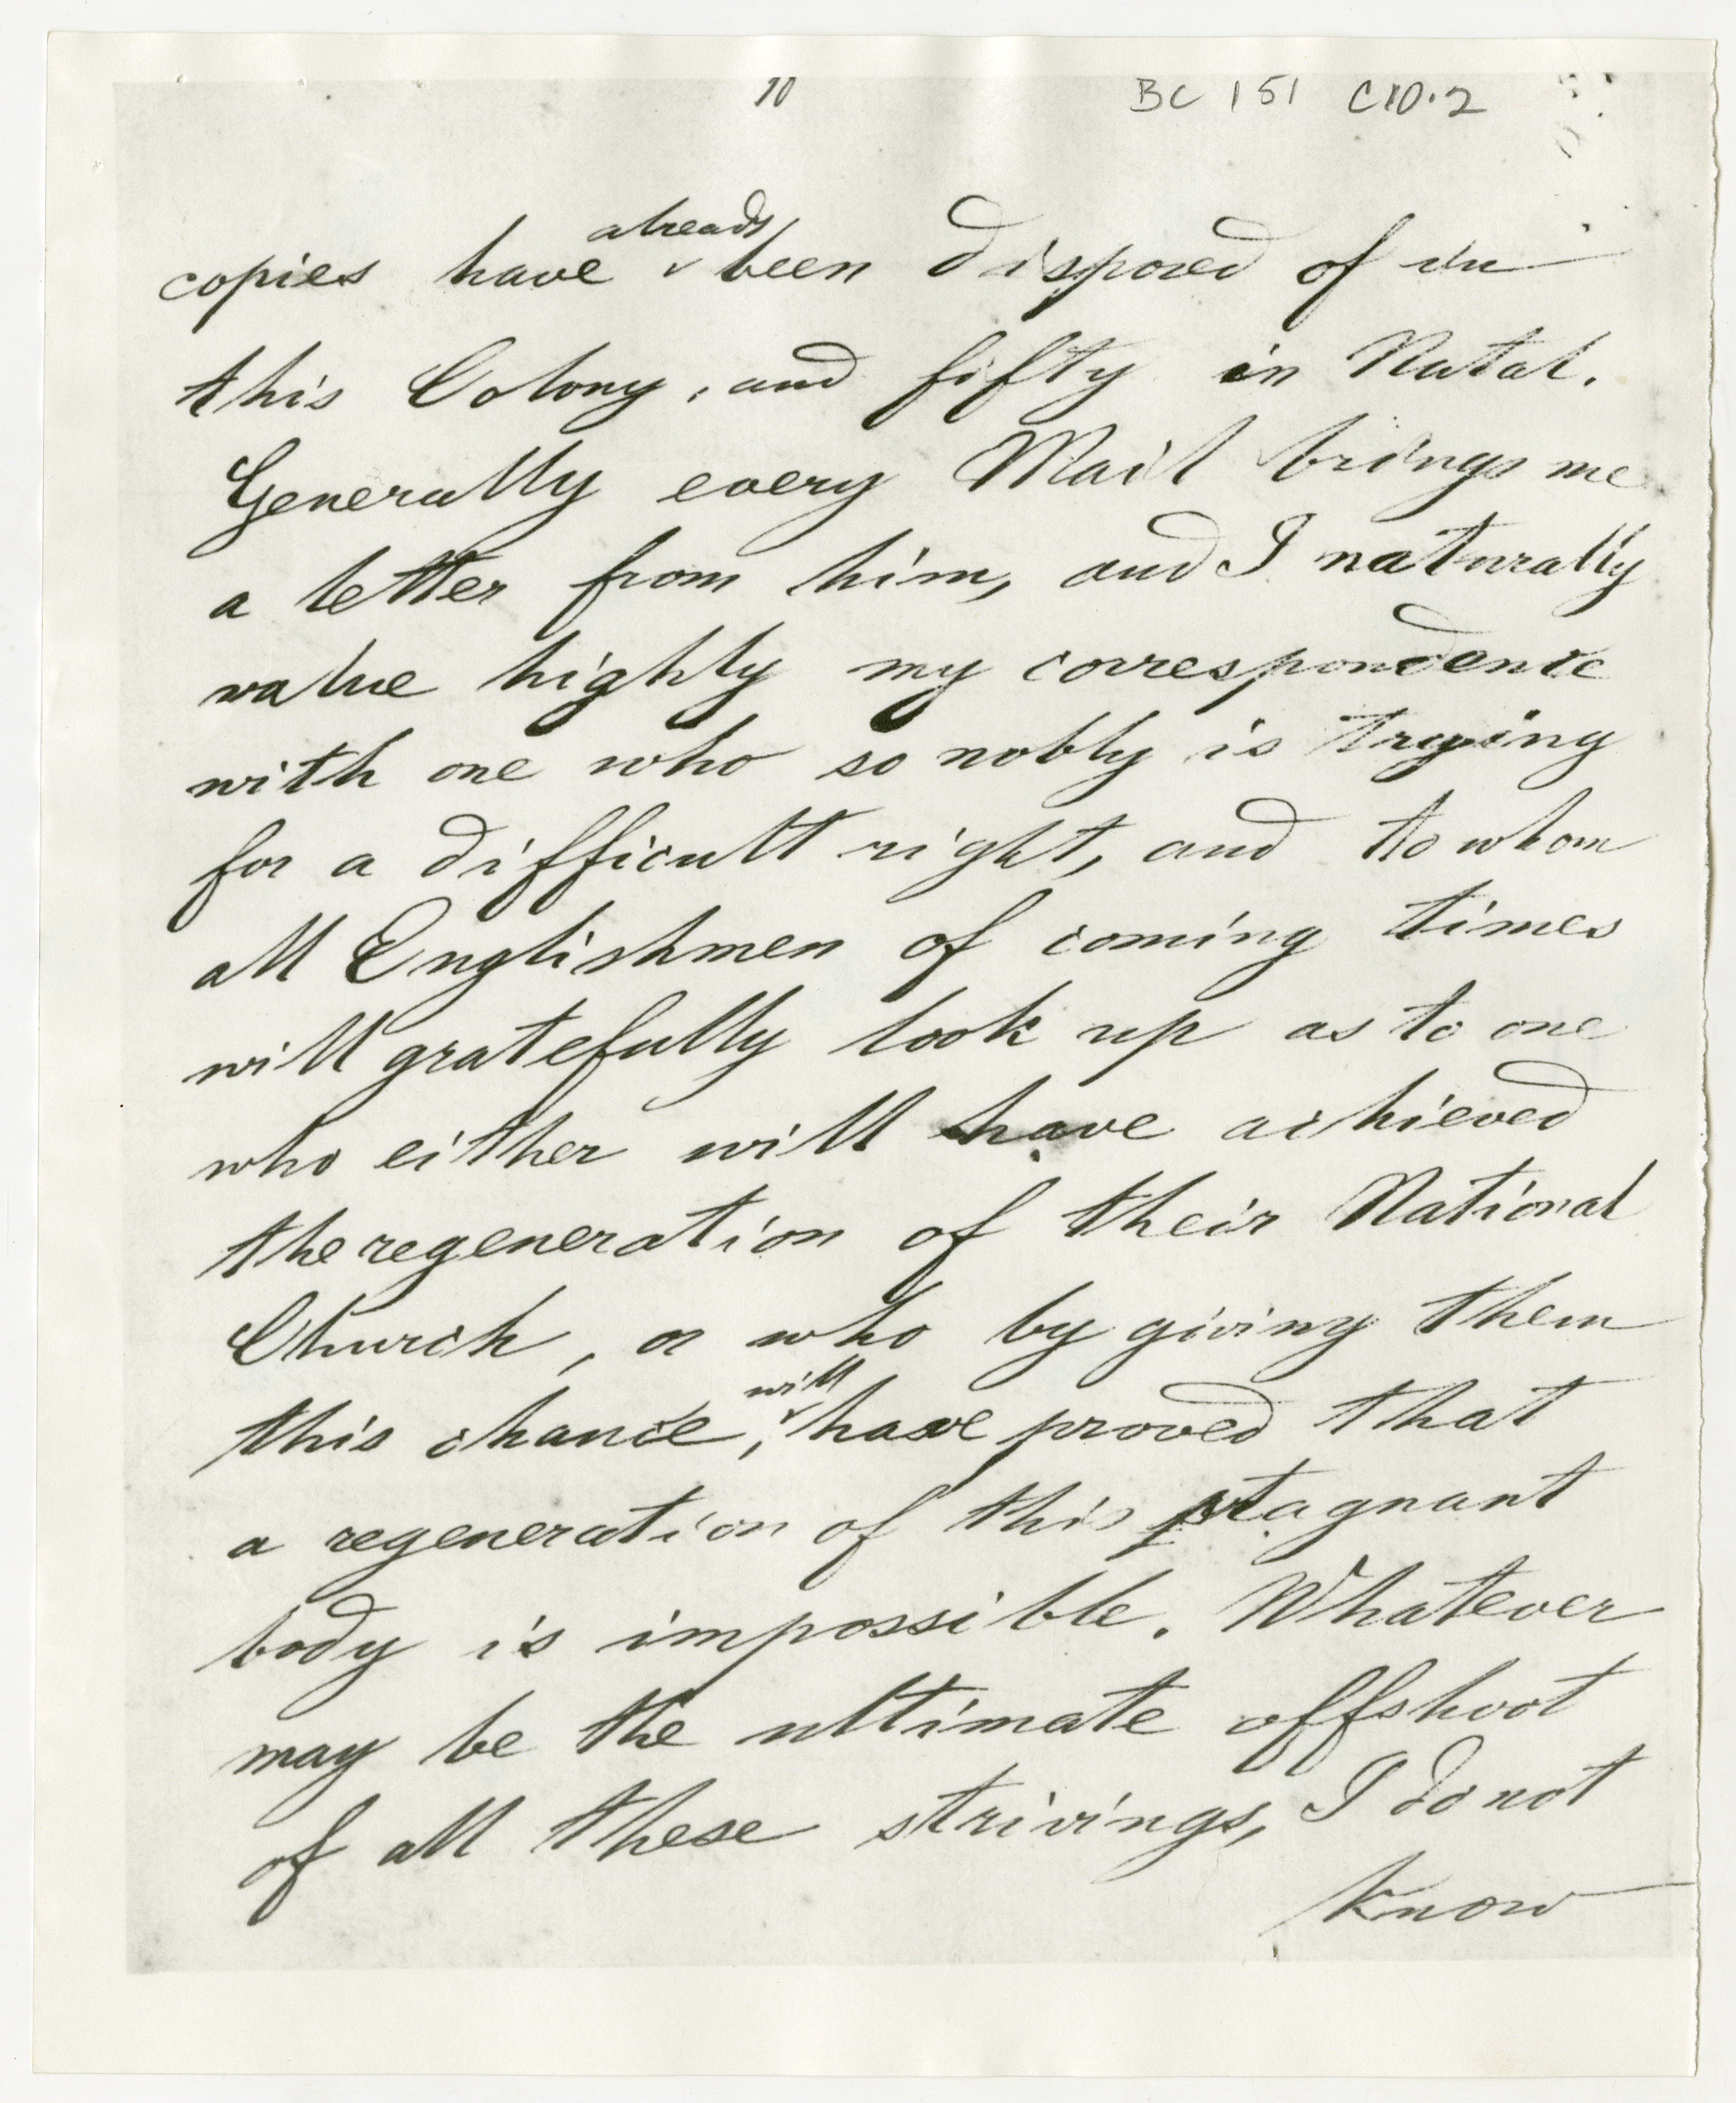 10
BC 151 C10.2
copies have already been disposed of in
this Colony, and fifty in Natal.
Generally every Mail brings me
a letter from him, and I naturally
value highly my correspondence
with one who so nobly is trying
for a difficult right, and to whom
all Englishmen of coming times
will gratefully look up as to one
who either will have achieved
the regeneration of their National
Church, or who by giving them
this chance, will have proved that
a regeneration of this stagnant
body is impossible. Whatever
may be the ultimate offshoot
of all these strivings, I do not
know